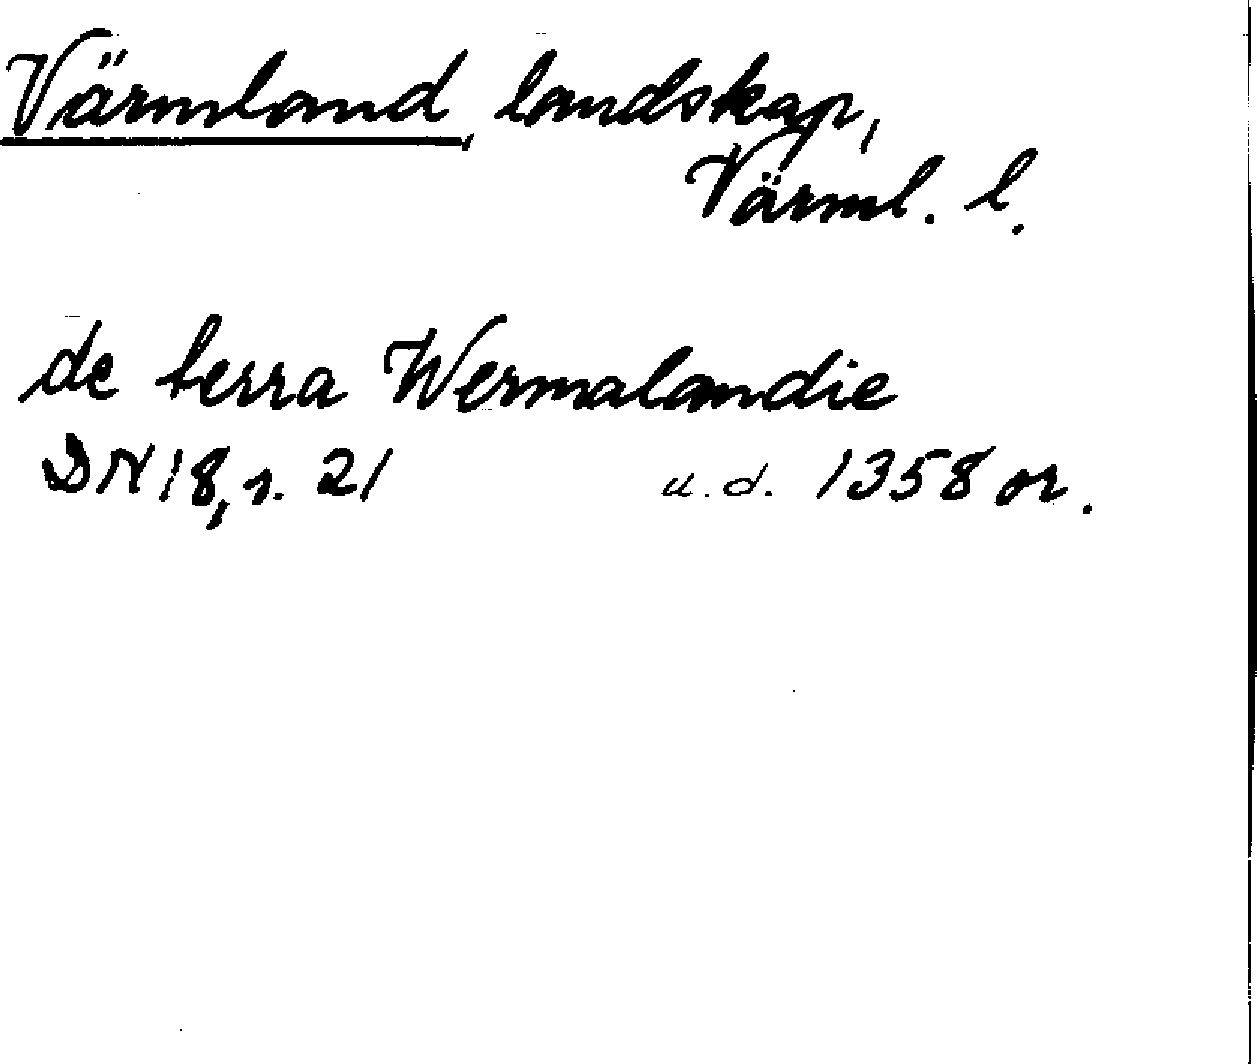 Värmland, landskap,
Värml. l.
de terra Wermalandie
DN 18, s. 21 u.d. 1358 or.